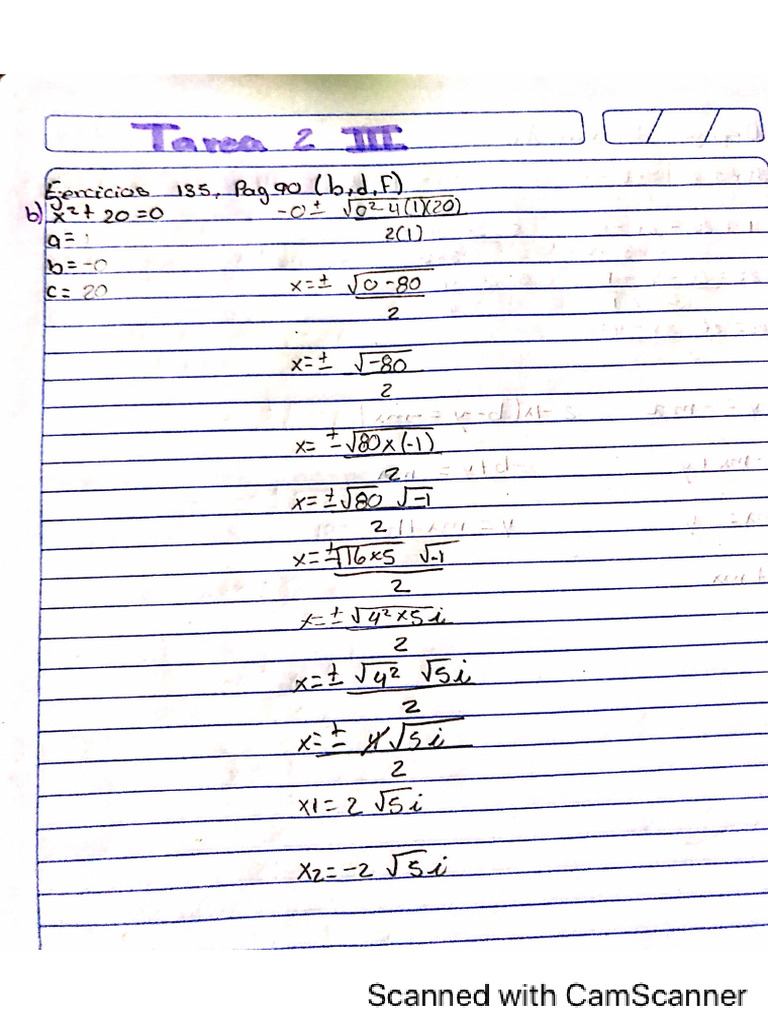 Tarea 2 III
Ejercicios 135, Pag 90 (b,d,F)
b) x²+ 20 =0
-0 ± √0²-4(1)(20)
2(1)
a= 1
b= -0
c= 20
x=± √0-80
2
x=± √-80
2
x= ±√80x(-1)
2
x=±√80 √-1
2
x=±√16x5 √-1
2
x=±√4²x5 i
2
x=± √4² √5 i
2
x=± 4√5 i
2
x1= 2 √5 i
x2= -2 √5 i
Scanned with CamScanner